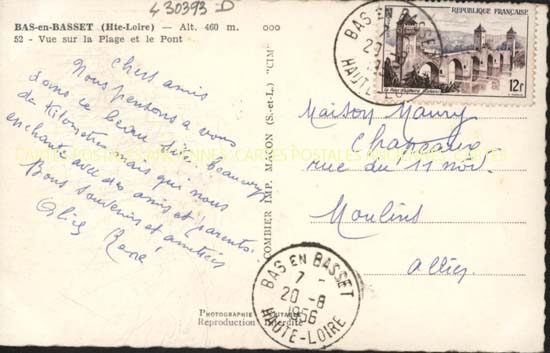 430393-D
BAS-en-BASSET (Hte-Loire) — Alt. 460 m.
52 - Vue sur la Plage et le Pont
Chers amis
Nous pensons a vous
dans ce beau
de Kilomètres mais qui nous
enchante avec des amis et parents.
Bons souvenirs et amitiés
René
COMBIER IMP. MACON (S.-et-L.) "CIM"
PHOTOGRAPHIE VÉRITABLE
Reproduction Interdite
RÉPUBLIQUE FRANÇAISE
12F
BAS EN BASSET
HAUTE-LOIRE
Maison Maury
Chapeaux
rue du 11 nov.
Moulins
Allier
BAS EN BASSET
7 -
20 - 8
1956
HAUTE-LOIRE